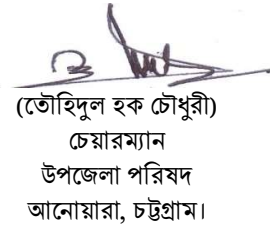 (তৌহিদুল হক চৌধুরী)
চেয়ারম্যান
উপজেলা পরিষদ
আনোয়ারা, চট্টগ্রাম।